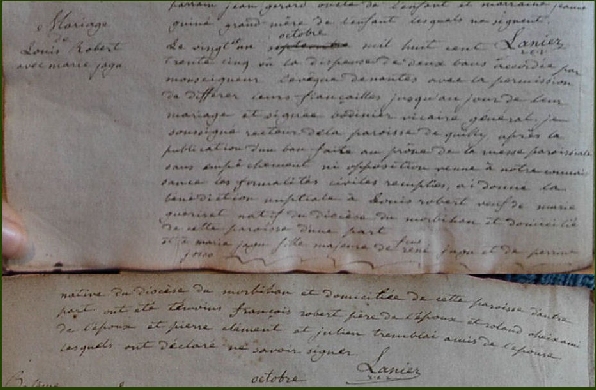 parrain jean gerard oncle de l'enfant et marraine jeanne
grand mère de l'enfant lesquels ne signent.
Lanier
Mariage
de
Louis Robert
avec marie jago
octobre
Le vingt un septembre mil huit cent
trente cinq vû la dispense de deux bans accordée par
monseigneur l'évêque de nantes avec la permission
de différer leurs fiançailles jusqu'au jour de leur
mariage et signée vicaire général je
soussigné recteur de la paroisse de après la
publication d'un ban faite au prône de la messe paroissiale
sans empêchement ni opposition venue à notre connais
sance les formalités civiles remplies, ai donné la
bénédiction nuptiale à Louis robert veuf de marie
natif du diocèse du morbihan et domicilié
de cette paroisse d'une part
et à marie jago fille majeure de feus rené jago et de perrine
native du diocèse du morbihan et domiciliée de cette paroisse d'autre
part ont été témoins françois robert père de l'époux et roland ami
de l'époux et pierre clement et julien tremblai amis de l'épouse
lesquels ont déclaré ne savoir signer
Lanier
octobre